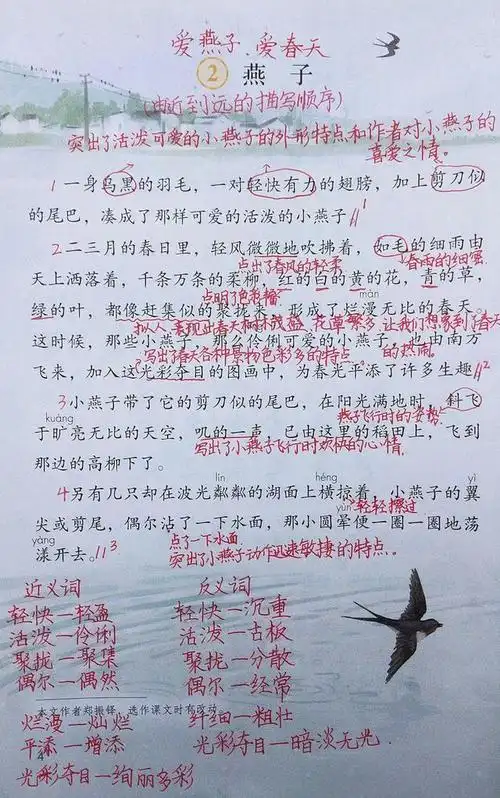 爱燕子、爱春天
2 燕子
(由近到远的描写顺序)
突出了活泼可爱的小燕子的外形特点和作者对小燕子的
喜爱之情。
1一身乌黑的羽毛，一对轻快有力的翅膀，加上剪刀似
的尾巴，凑成了那样可爱的活泼的小燕子。//1
2二三月的春日里，轻风微微地吹拂着，如毛的细雨由
点出了春风的轻柔
春雨的细密
天上洒落着，千条万条的柔柳，红的白的黄的花，青的草，
点明了色彩
màn
绿的叶，都像赶集似的聚拢来，形成了烂漫无比的春天。
拟人，表现出春天树木茂盛，花草繁多，让我们想象到了春天
这时候，那些小燕子，那么伶俐可爱的小燕子，也由南方
写出了春天各种景物色彩多的特点
的热闹。
飞来，加入这光彩夺目的图画中，为春光平添了许多生趣。//2
3小燕子带了它的剪刀似的尾巴，在阳光满地时，斜飞
kuàng
燕子飞行时的姿势
于旷亮无比的天空，叽的一声，已由这里的稻田上，飞到
写出了小燕子飞行时欢快的心情
那边的高柳下了。
lín
yì
4另有几只却在波光粼粼的湖面上横掠着，小燕子的翼
yùn
轻轻擦过
尖或剪尾，偶尔沾了一下水面，那小圆晕便一圈一圈地荡
yàng
点了一下水面
漾开去。//3
突出了小燕子动作迅速敏捷的特点。
近义词
反义词
轻快一轻盈
轻快一沉重
活泼一伶俐
活泼一古板
聚拢一聚集
聚拢一分散
偶尔一偶然
偶尔一经常
本文作者郑振铎，选作课文时有改动。
烂漫一灿烂
纤细一粗壮
平添一增添
光彩夺目一暗淡无光
4
光彩夺目一绚丽多彩